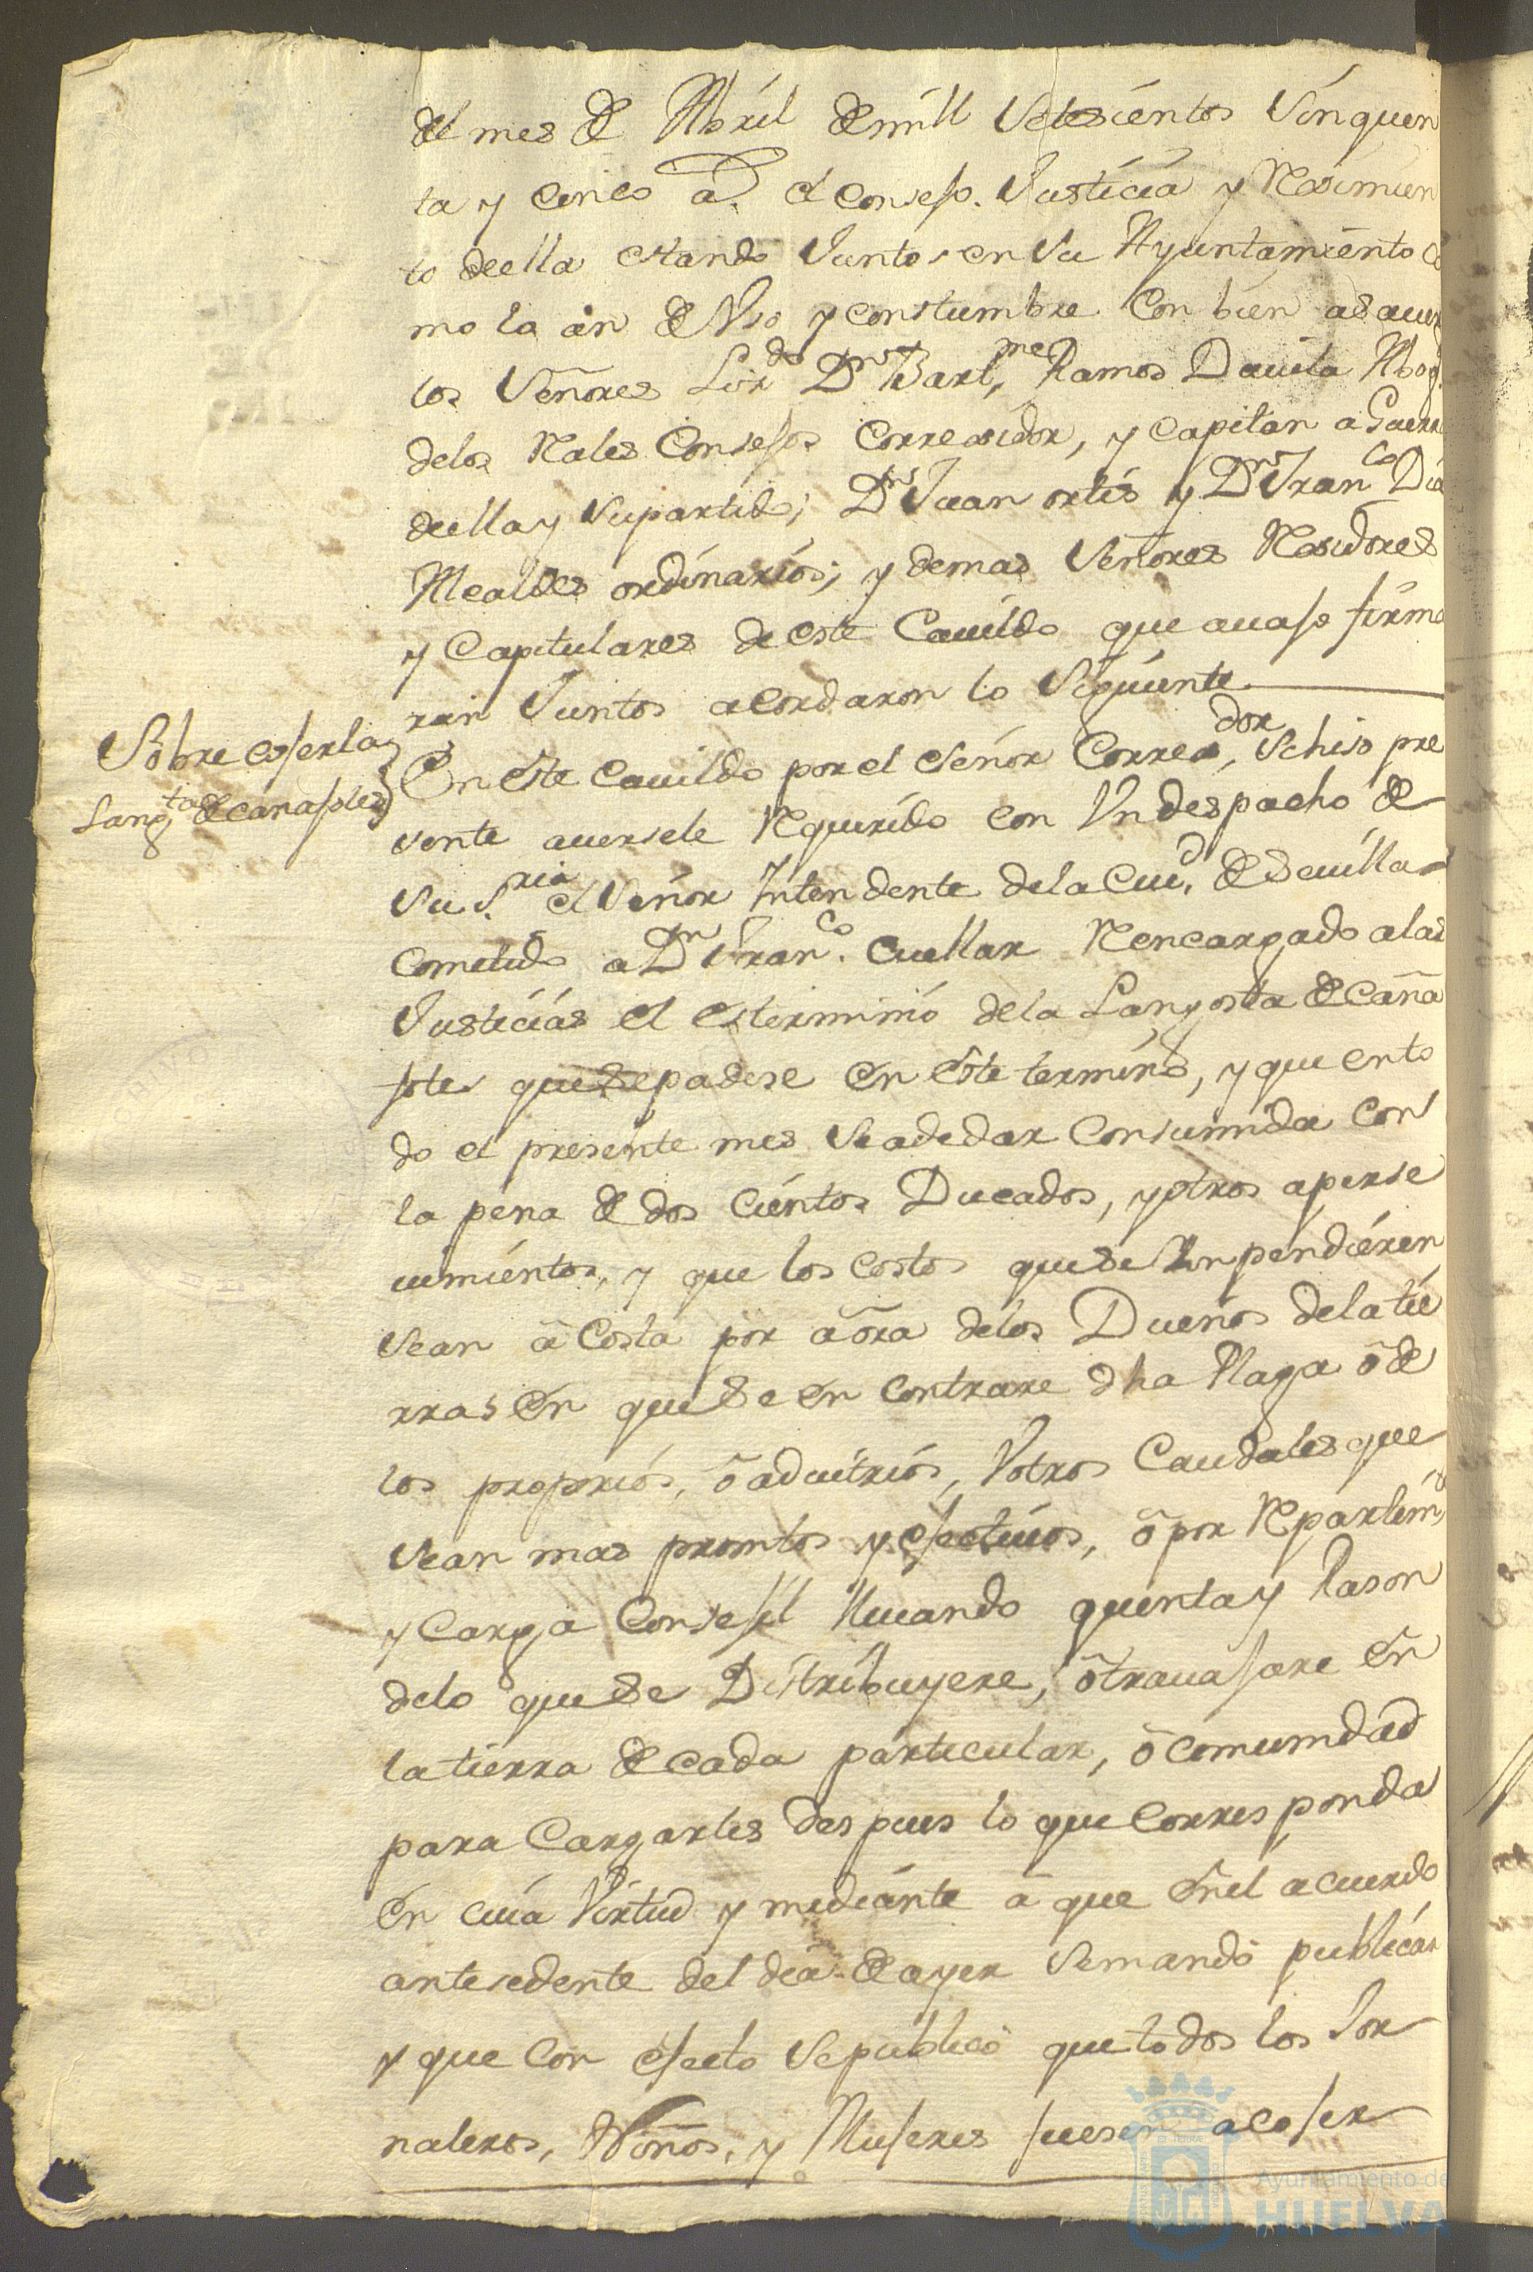 del mes de Abril de mill setesientos sinquen
ta y cinco a.s el consejo. Justicia y Reximien
to de ella estando Juntos en su Ayuntamiento Co
mo lo an de Uso y constumbre Con bien asauer
los Señores Lizdo Dn Bartme Ramos Dauila Abog.
delos Rales Consejos Correxidor, y Capitan a Guerra
de ella y supartido; Dn Juan ortis y Dn Franco Dia
Alcaldes ordinarios; y demas señores Rexidores
y Capitulares de este Cauildo que auajo firma
ran Juntos acordaron lo siguiente
Sobre cojer la
Langta de canafotes
En este cauildo por el señor Correxdor, se hiso pre
sente auersele Requerido con Un despacho de
su S.ria el señor Intendente dela Ciud. de Seuilla
Cometido a Dn Franco. Cuellar Rencargado alas
Justicias el esterminio dela Langosta de Caña
fote que se padese en este termino, y que en to
do el presente mes se a de dar Consumida con
la pena de dos cientos Ducados, y otros aperse
uimientos, y que los costos que se Impendieren
sean a Costa por aora delos Dueños dela tie
rras en que se en contrare dha Plaga o de
los proprios, o aduitrios, Y otros Caudales que
sean mas promtos y efectiuos, o por Repartimto
y Carga Consejil lleuando quenta y Rason
delo que se Distribuyere, o trauajare en
la tierra de cada particular, o comunidad
para Cargarles despues lo que Corresponda
En cuia Virtud y mediante a que en el acuerdo
antesedente del dia de ayer se mando publicar
y que con efecto se publico que todos los Jor
naleros, Niños, y Mujeres fuesen a cojer
Ayuntamiento de
HUELVA